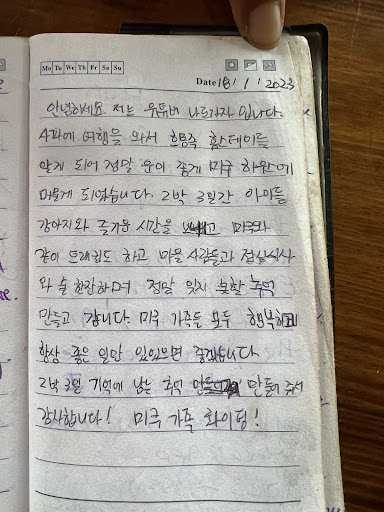 Mo Tu We Th Fr Sa Su
Date 18 / 1 / 2023
안녕하세요. 저는 유튜버 나르가자 입니다.
사파에 여행을 와서 흐몽족 홈스테이를
알게 되어 정말 운이 좋게 미국 하우스에
머물게 되었습니다. 2박 3일간 아이들
강아지와 즐거운 시간을 보내고 미국와
같이 트래킹도 하고 마을 사람들과 점심식사
와 술 한잔하며 정말 잊지 못할 추억
만들고 갑니다. 미국 가족들 모두 행복하고
항상 좋은 일만 있었으면 좋겠습니다
2박 3일 기억에 남는 추억 만들어 줘서
감사합니다! 미국 가족 화이팅!